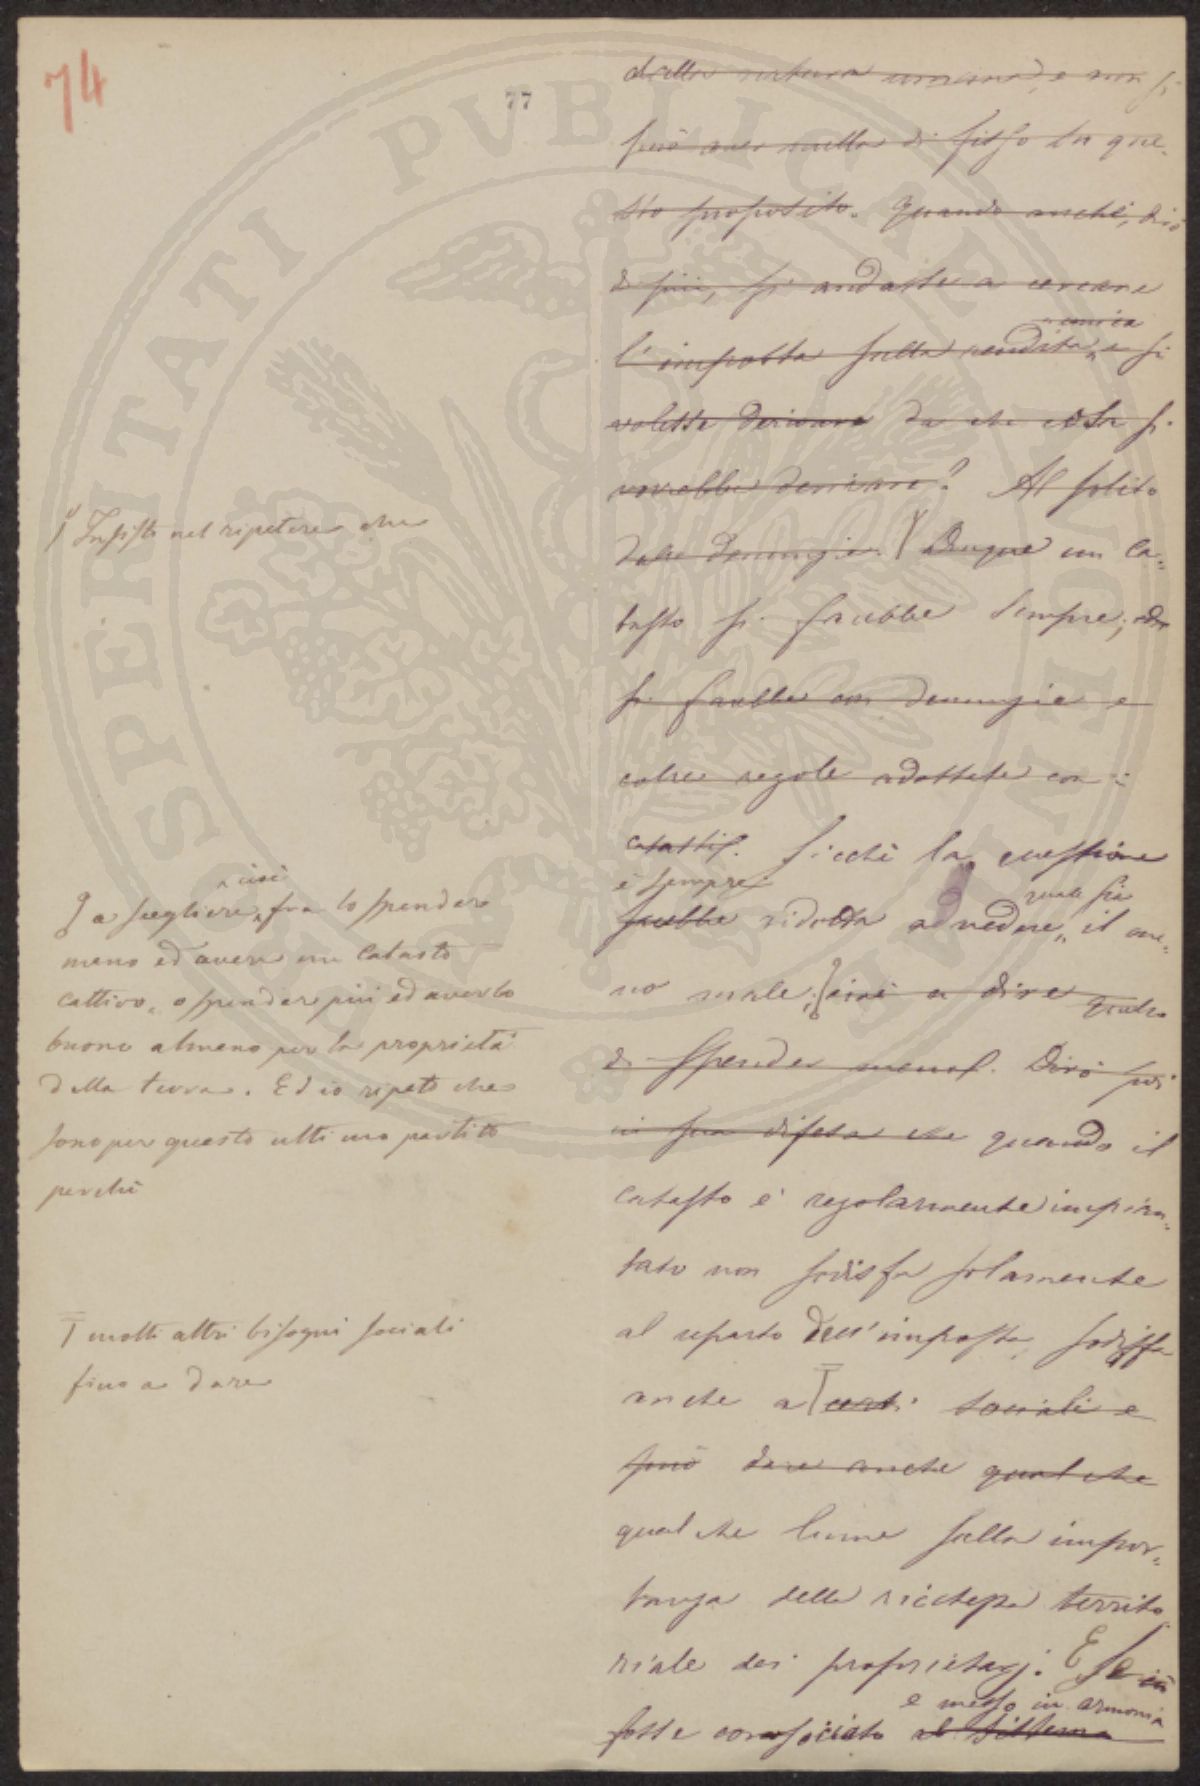 74
77
dalla natura umana, e non si
può aver nulla di fisso in que-
sto proposito. Quando anche, dirò
di più, si andasse a cercare
l'imposta sulla rendita unica e si
volesse derivare da che cosa si
vorrebbe derivare? Al solito
dalle denunzie. Dunque un ca-
tasto si farebbe sempre;
si farebbe con denunzie e
colle regole adottate con
catasti. Sicchè la questione
è sempre
sarebbe ridotta ad vedere quale sia il me-
no male, cioè a dire quello
di spender meno. Dirò poi
in sua difesa che quando il
catasto è regolarmente impian-
tato non sodisfa solamente
al reparto dell'imposta, sodisfa
anche a certi sociali e
può dare anche qualche
qualche lume sulla impor-
tanza della ricchezza territo
riale dei proprietarj. E se
e messo in armonia
fosse consociato al sistema
Insisto nel ripetere che
a scegliere, cioè fra lo spendere
meno ed avere un catasto
cattivo, o spender più ed averlo
buono almeno per la proprietà
della terra. Ed io ripeto che
sono per questo ultimo partito
perchè
molti altri bisogni sociali
fino a dare
PROSPERITATI PVBLICAE